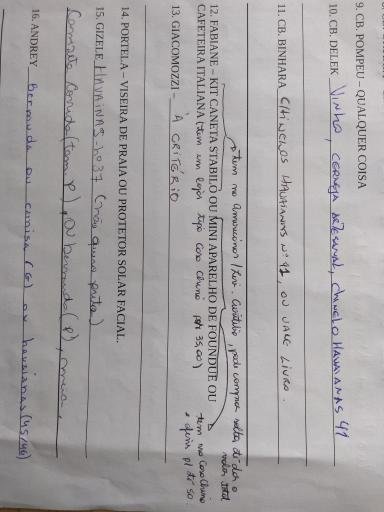 9. CB. POMPEU – QUALQUER COISA
10. CB. DELEK VINHO, CERVEJA ARTESANAL, CHINELO HAVAIANAS 41
11. CB. BINHARA CHINELOS HAVAIANAS Nº 41, OU VALE LIVRO.
tem na americanas/Liv. Curitiba, pode comprar
valor total
12. FABIANE – KIT CANETA STABILO OU MINI APARELHO DE FOUNDUE OU
CAFETEIRA ITALIANA (tem um loja tipo Casa China por 35,00)
tem na Casa China
13. GIACOMOZZI – À CRITÉRIO
14. PORTELA – VISEIRA DE PRAIA OU PROTETOR SOLAR FACIAL.
15. GIZELE HAVAIANAS - Nº 37 (não quero preta)
Camiseta Corrida (Tam P), OU bermuda (P),
16. ANDREY Bermuda ou camisa (G) ou havaianas (45/46)